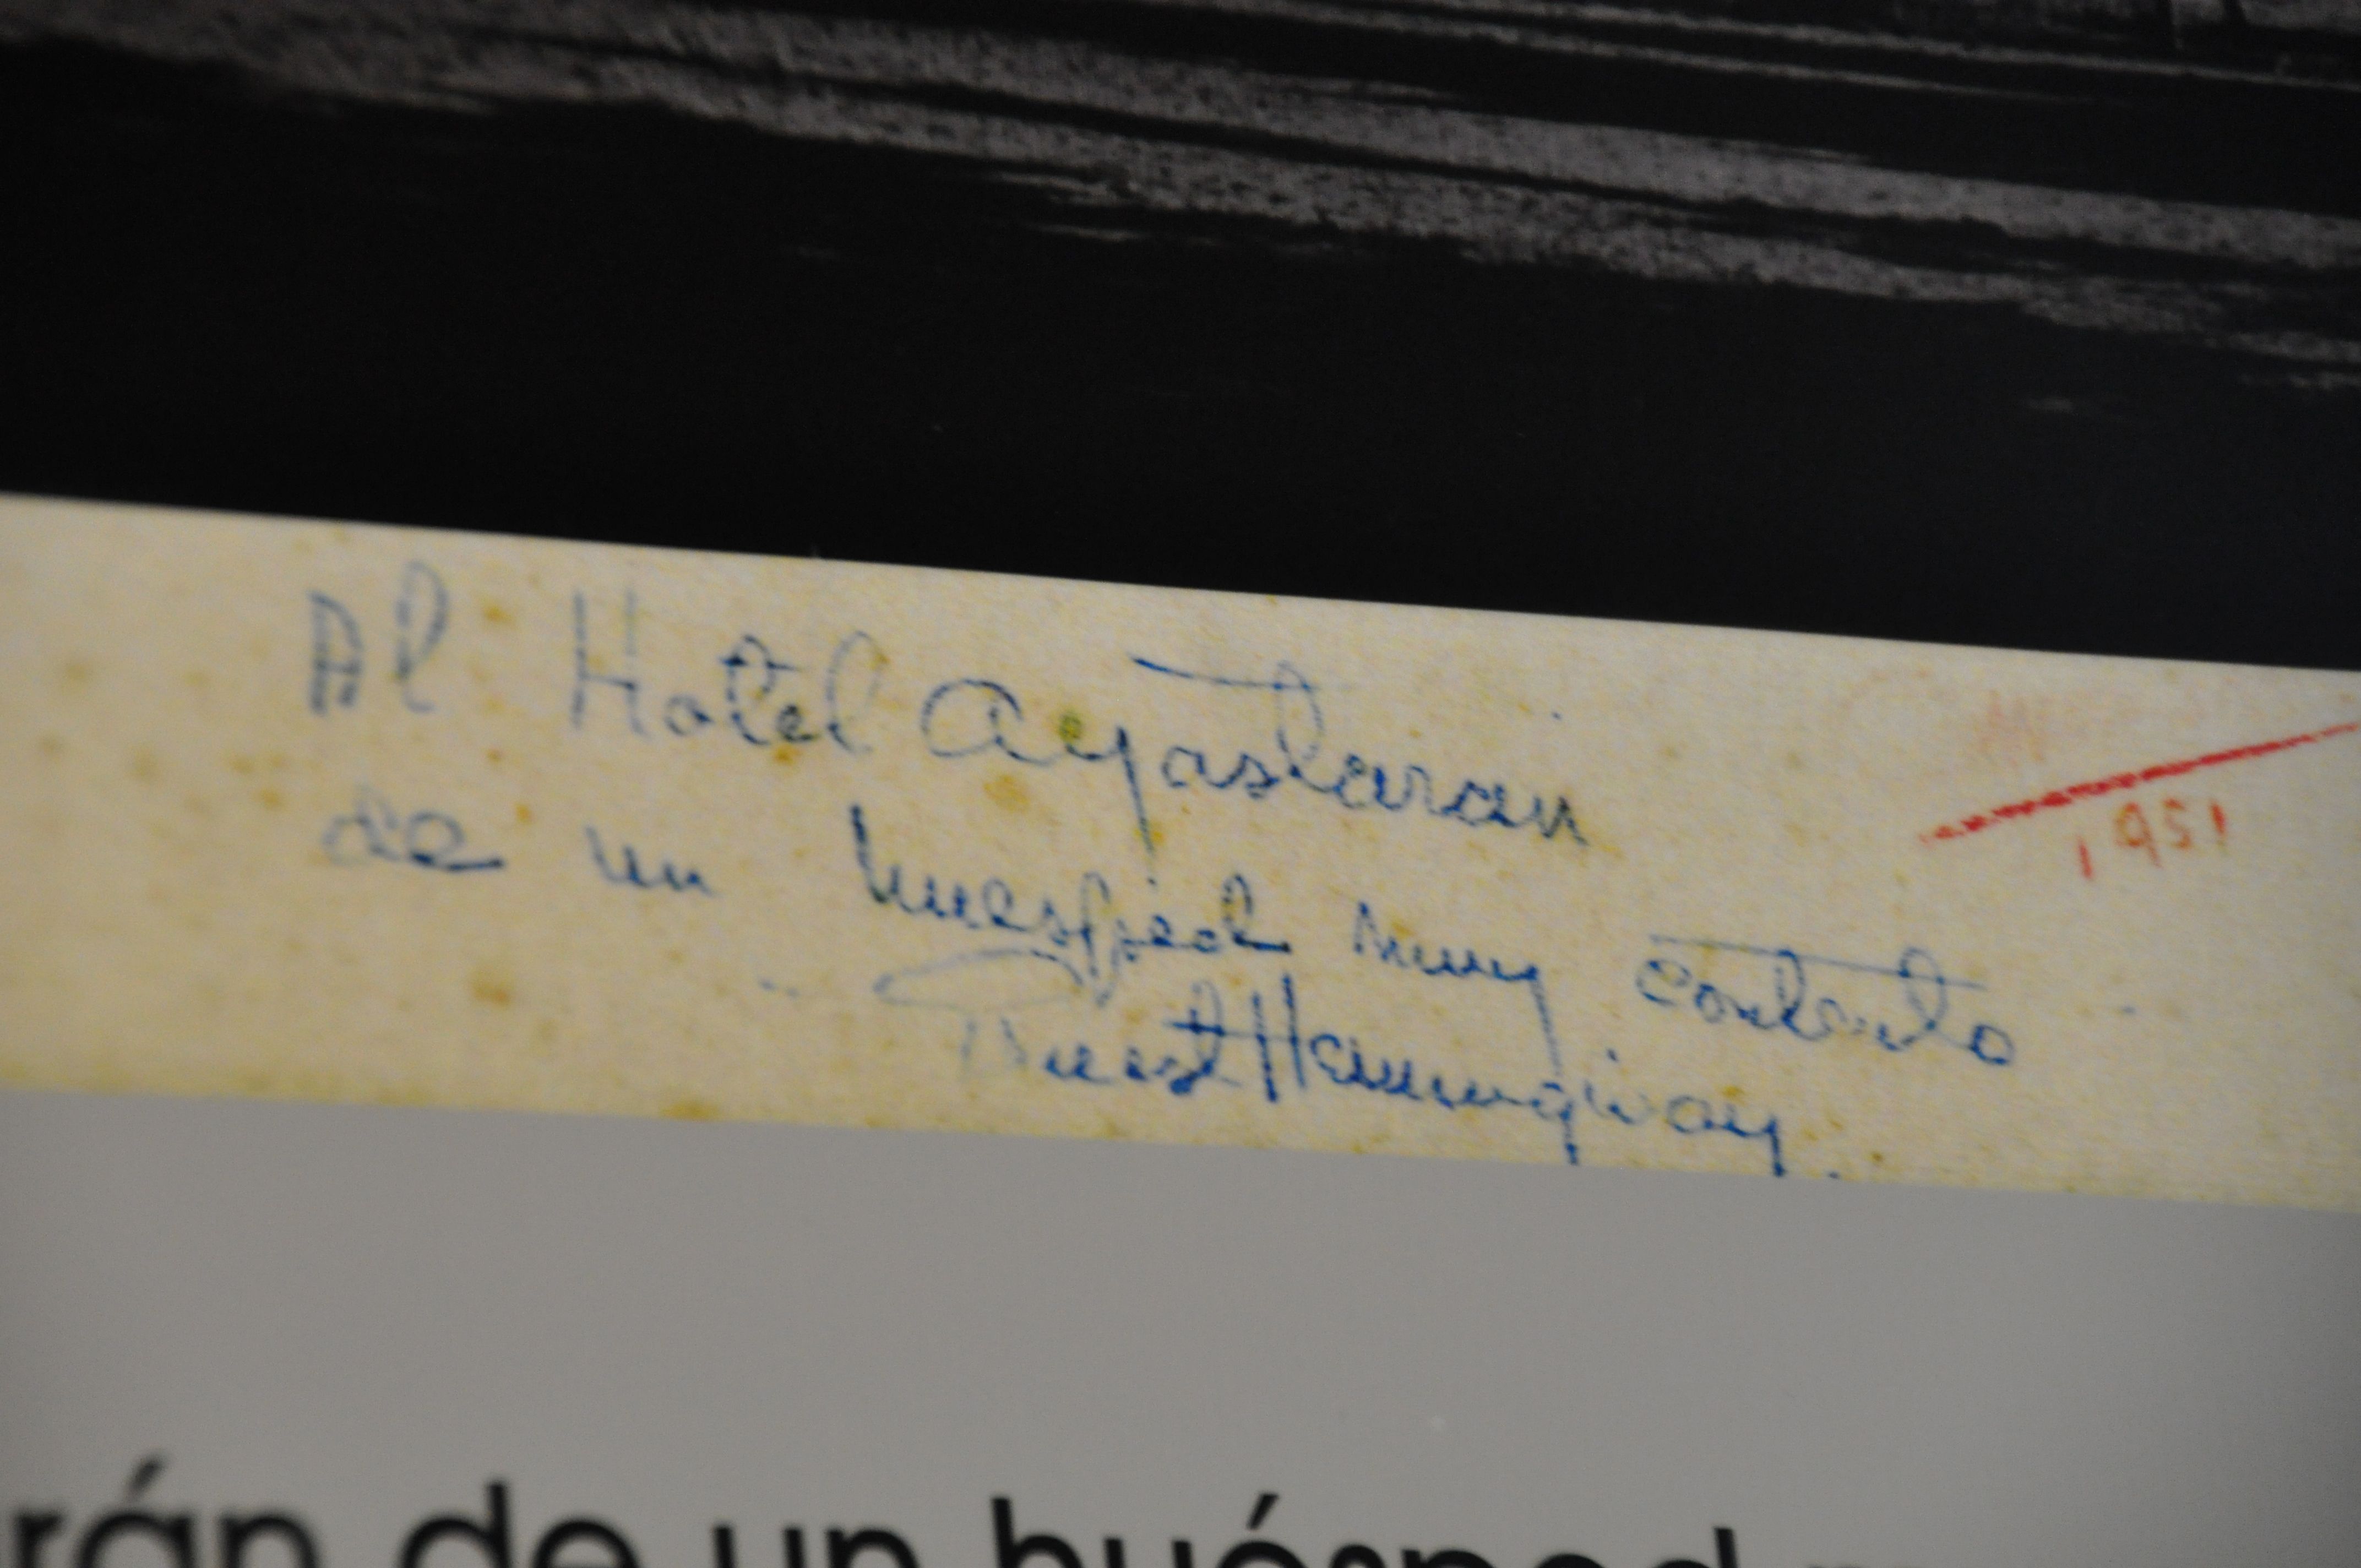 Al Hotel Ayastaran
1951
de un huesped muy contento
Ernest Hemingway.
rán de un huésped